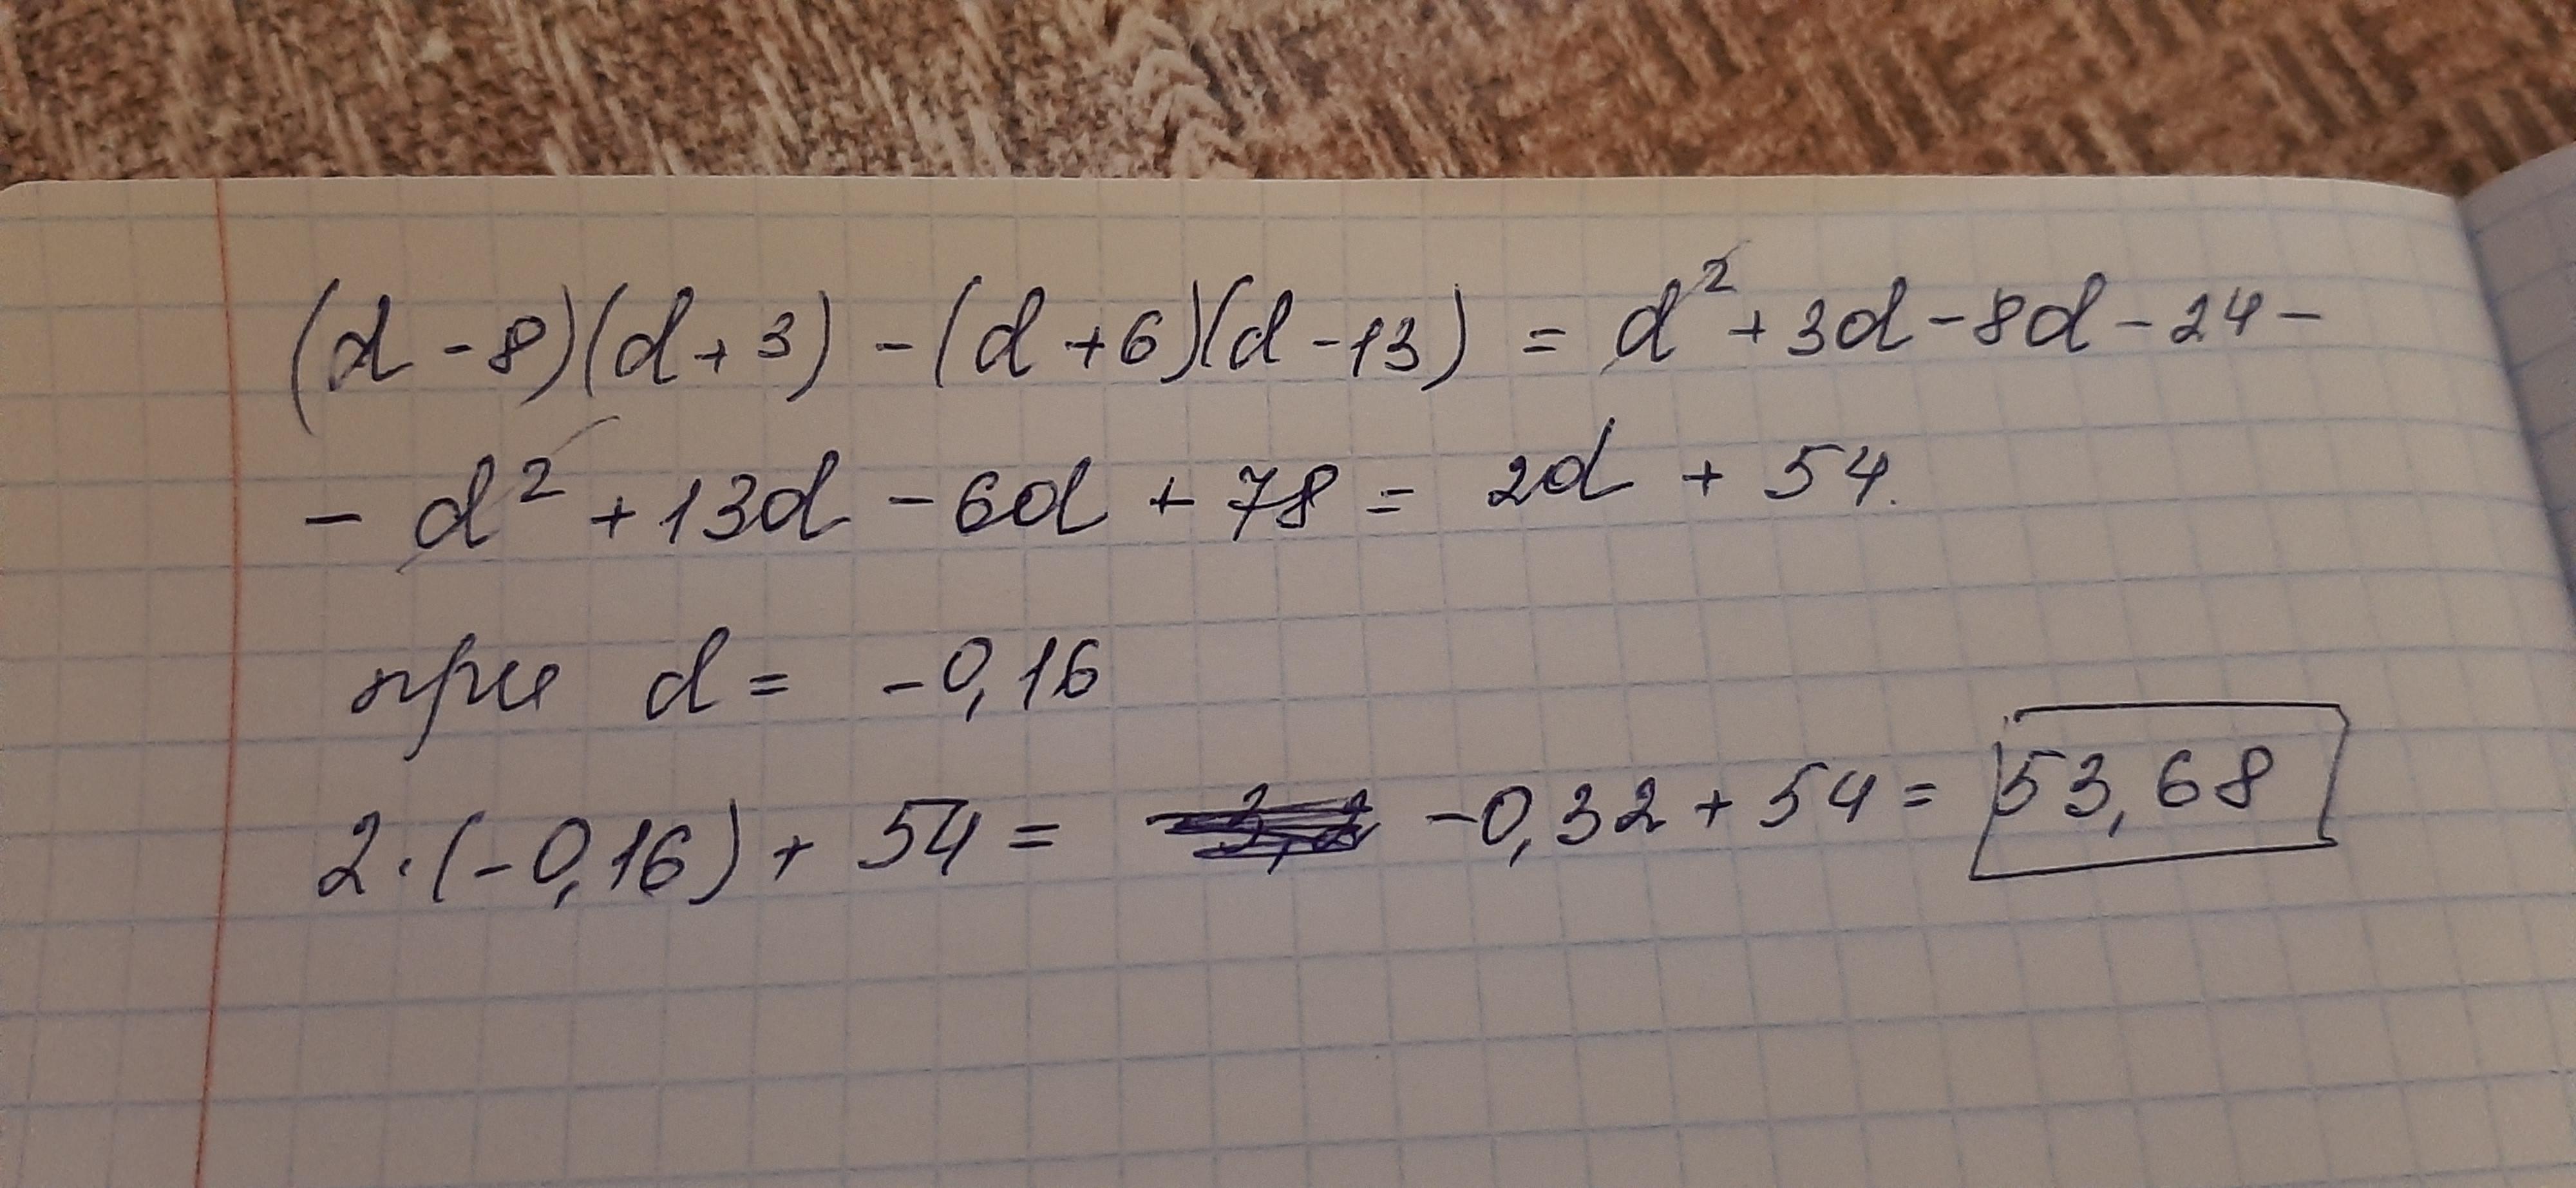 (d-8)(d+3)-(d+6)(d-13) = d²+3d-8d-24-
-d²+13d-6d+78 = 2d+54.
при d = -0,16
2·(-0,16)+54 = -0,32+54 = 53,68